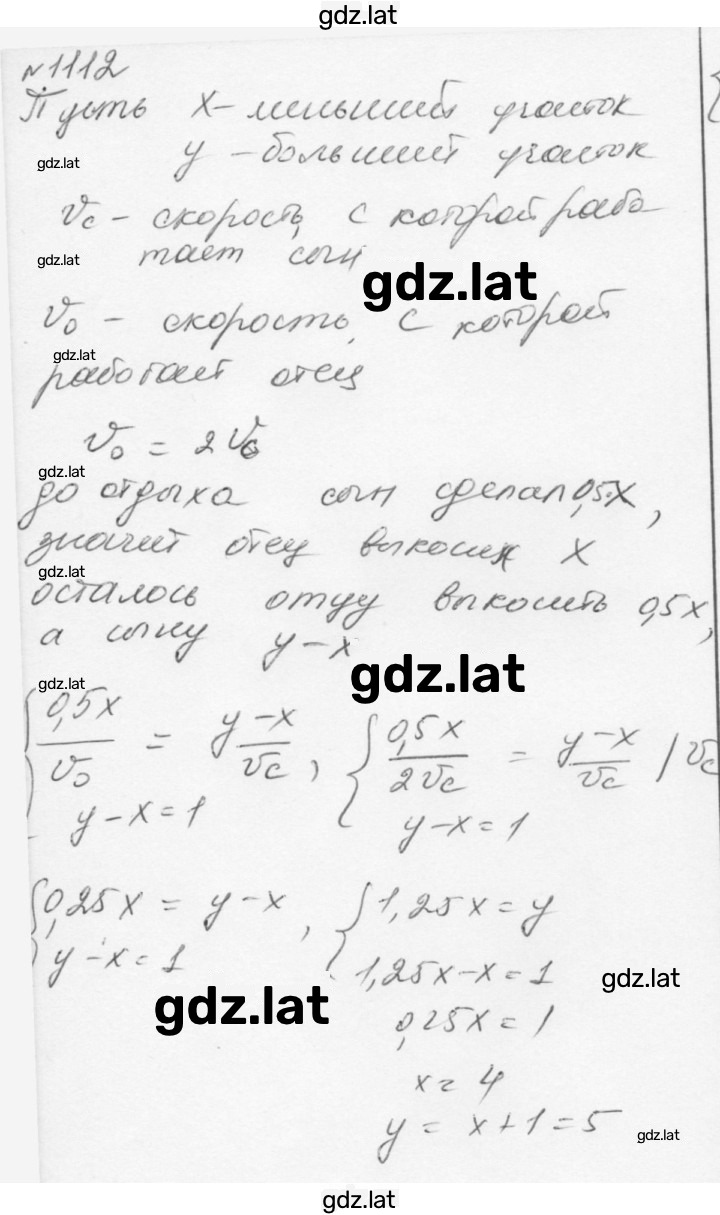 gdz.lat
№1112
Пусть x - меньший участок
gdz.lat
y - больший участок
Vс - скорость, с которой рабо-
gdz.lat
тает сын
gdz.lat
Vо - скорость, с которой
gdz.lat
работает отец
Vо = 2Vс
gdz.lat
до отдыха сын сделал 0,5x,
значит отец выкосил x
gdz.lat
осталось отцу выкосить 0,5x,
а сыну y-x
gdz.lat
gdz.lat
{ 0,5x/Vо = y-x/Vс, { 0,5x/2Vс = y-x/Vс / Vс
y-x=1 y-x=1
{ 0,25x = y-x, { 1,25x = y
y-x=1 1,25x-x=1
gdz.lat
gdz.lat
0,25x=1
x=4
y = x+1=5
gdz.lat
gdz.lat